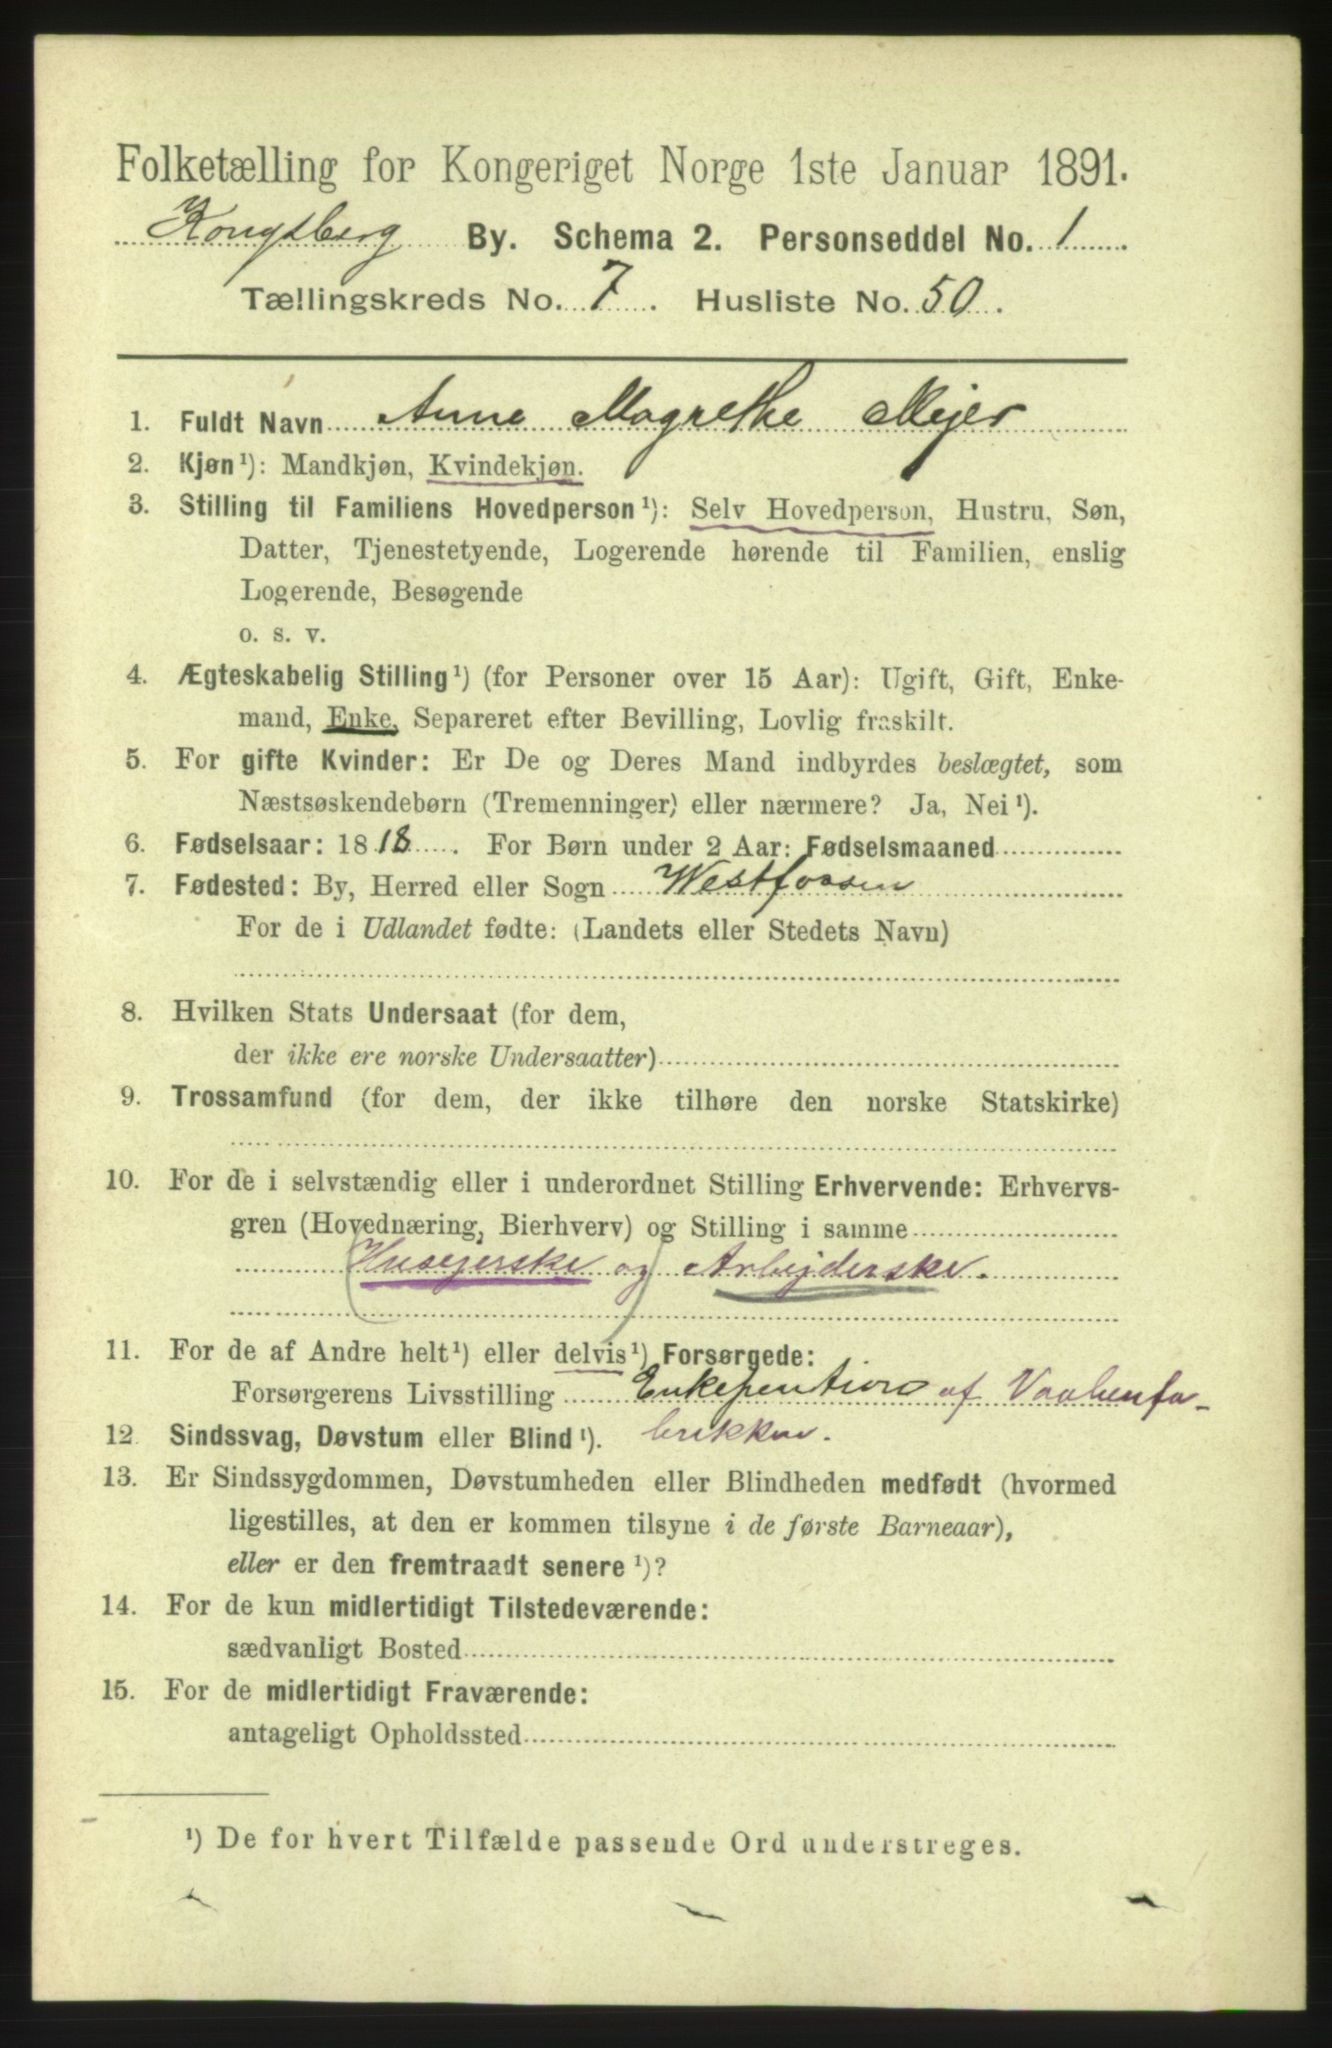 Folketælling for Kongeriget Norge 1ste Januar 1891.
Kongsberg By. Schema 2. Personseddel No. 1
Tællingskreds No. 7. Husliste No. 50.
1. Fuldt Navn Anne Magrethe Mejer
2. Kjøn¹): Mandkjøn, Kvindekjøn.
3. Stilling til Familiens Hovedperson¹): Selv Hovedperson, Hustru, Søn,
Datter, Tjenestetyende, Logerende hørende til Familien, enslig
Logerende, Besøgende
o. s. v.
4. Ægteskabelig Stilling¹) (for Personer over 15 Aar): Ugift, Gift, Enke-
mand, Enke, Separeret efter Bevilling, Lovlig fraskilt.
5. For gifte Kvinder: Er De og Deres Mand indbyrdes beslægtet, som
Næstsøskendebørn (Tremenninger) eller nærmere? Ja, Nei¹).
6. Fødselsaar: 1818. For Børn under 2 Aar: Fødselsmaaned
7. Fødested: By, Herred eller Sogn Westfossen
For de i Udlandet fødte: (Landets eller Stedets Navn)
8. Hvilken Stats Undersaat (for dem,
der ikke ere norske Undersaatter)
9. Trossamfund (for dem, der ikke tilhøre den norske Statskirke)
10. For de i selvstændig eller i underordnet Stilling Erhvervende: Erhvervs-
gren (Hovednæring, Bierhverv) og Stilling i samme
(Husejerske og) Arbejderske.
11. For de af Andre helt¹) eller delvis¹) Forsørgede:
Forsørgerens Livsstilling Enkepention af Vaabenfa-
12. Sindssvag, Døvstum eller Blind¹). brikken.
13. Er Sindssygdommen, Døvstumheden eller Blindheden medfødt (hvormed
ligestilles, at den er kommen tilsyne i de første Barneaar),
eller er den fremtraadt senere¹)?
14. For de kun midlertidigt Tilstedeværende:
sædvanligt Bosted
15. For de midlertidigt Fraværende:
antageligt Opholdssted
¹) De for hvert Tilfælde passende Ord understreges.